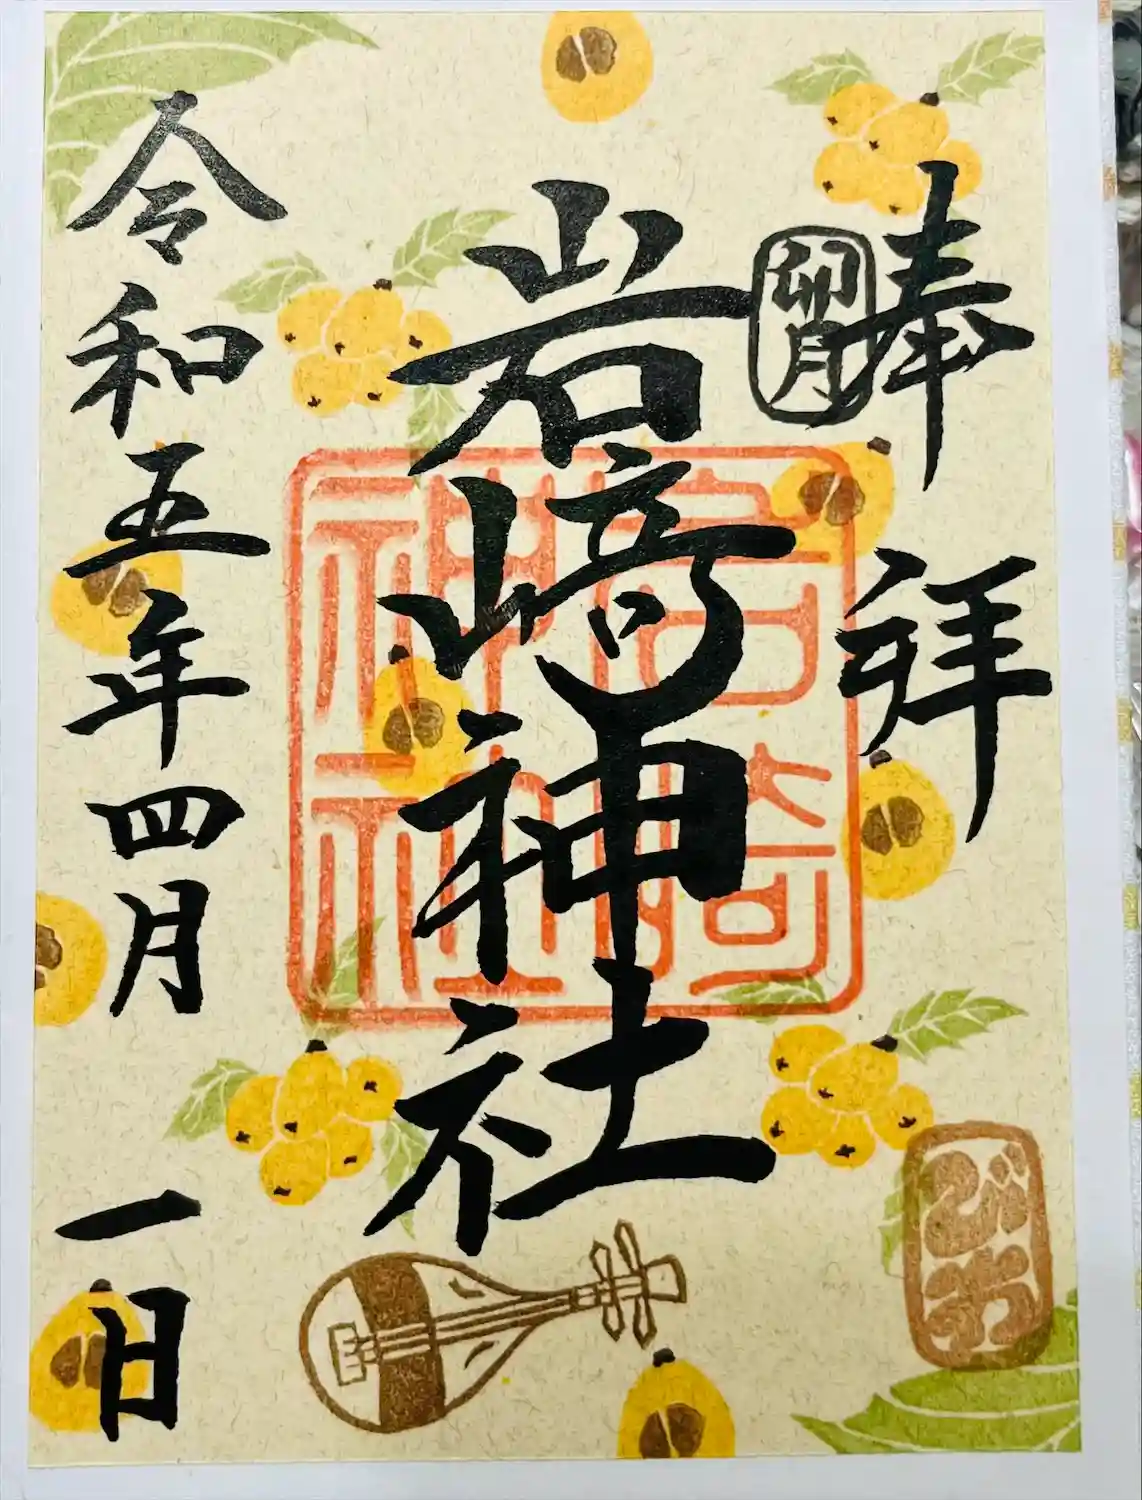 奉拝
卯月
岩崎神社
岩崎
神社
令和五年四月一日
びわ